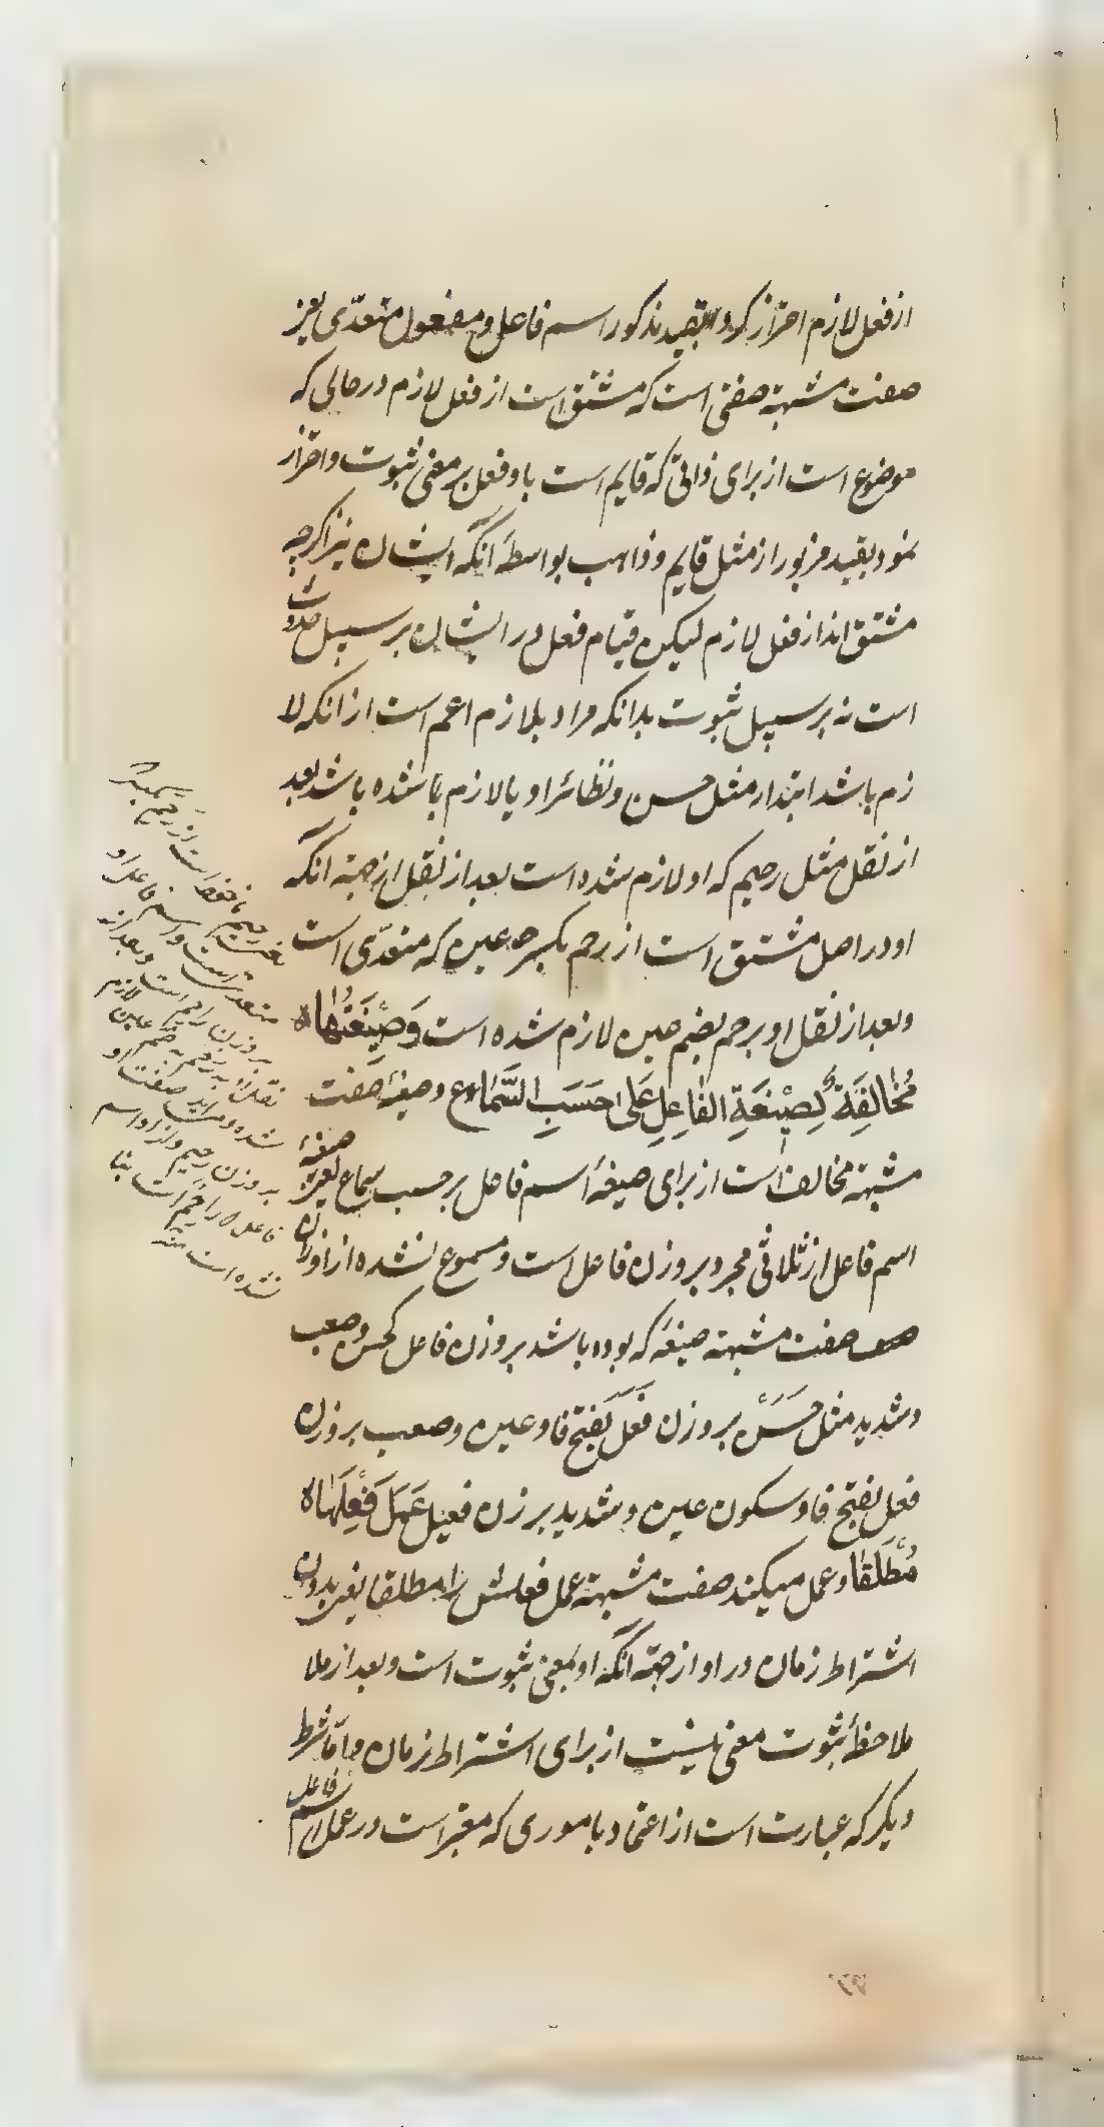 از فعل لازم احتراز کرد بقید مذکور از اسم فاعل و مفعول متعدّی یعنی
صفت مشبهة صفتی است که مشتق است از فعل لازم در حالی که
موضوع است از برای ذاتی که قایم است باو فعل بر معنی ثبوت و احتراز
نمود بقید مزبور از مثل قایم و ذاهب بواسطهٔ آنکه ایشان نیز اگرچه
مشتق اند از فعل لازم لیکن قیام فعل در ایشان بر سبیل حدوث
است نه بر سبیل ثبوت بدانکه مراد بلازم اعم است از انکه لا
زم باشد ابتداء مثل حسن و نظائر او یا لازم شده باشد بعد
از نقل مثل رحیم که او لازم شده است بعد از نقل از جهة انکه
او در اصل مشتق است از رحم بکسره عین که متعدّی است
و بعد از نقل او برحم بضم عین لازم شده است وَصِیْغَتُهَا
مُخَالِفَةٌ لِصِیْغَةِ الفَاعِلِ عَلَی حَسَبِ السَّمَاعِ و صیغهٔ صفت
مشبهة مخالف است از برای صیغهٔ اسم فاعل بر حسب سماع یعنی صیغهٔ
اسم فاعل از ثلاثی مجرد بر وزن فاعل است و مسموع نشده از اوزان
صفت مشبهة صیغهٔ که بوده باشد بر وزن فاعل کحسن و صعب
و شدید مثل حَسَنٌ بر وزن فَعَل بفتح فا و عین و صعب بر وزن
فعل بفتح فا و سکون عین و شدید بر وزن فعیل عَمَلَ فِعْلِهَا
مُطْلَقًا و عمل میکند صفت مشبهة عمل فعلش را مطلقا یعنی بدون
اشتراط زمان در او از جهة انکه او بمعنی ثبوت است و بعد از ملا
ملاحظهٔ ثبوت معنی نیست از برای اشتراط زمان و امّا شرط
دیگر که عبارت است از اعتماد باموری که معتبر است در عمل اسم فاعل
رحیم ماخوذ است از رَحِمَ بکسر
متعدی است و اسم فاعل او
بر وزن راحم است و بعد از
نقل او به رحم به ضم عین لازم
شده و صفت او
بر وزن رحیم و از او اسم
فاعل که راحم است بنا
نشده است منه